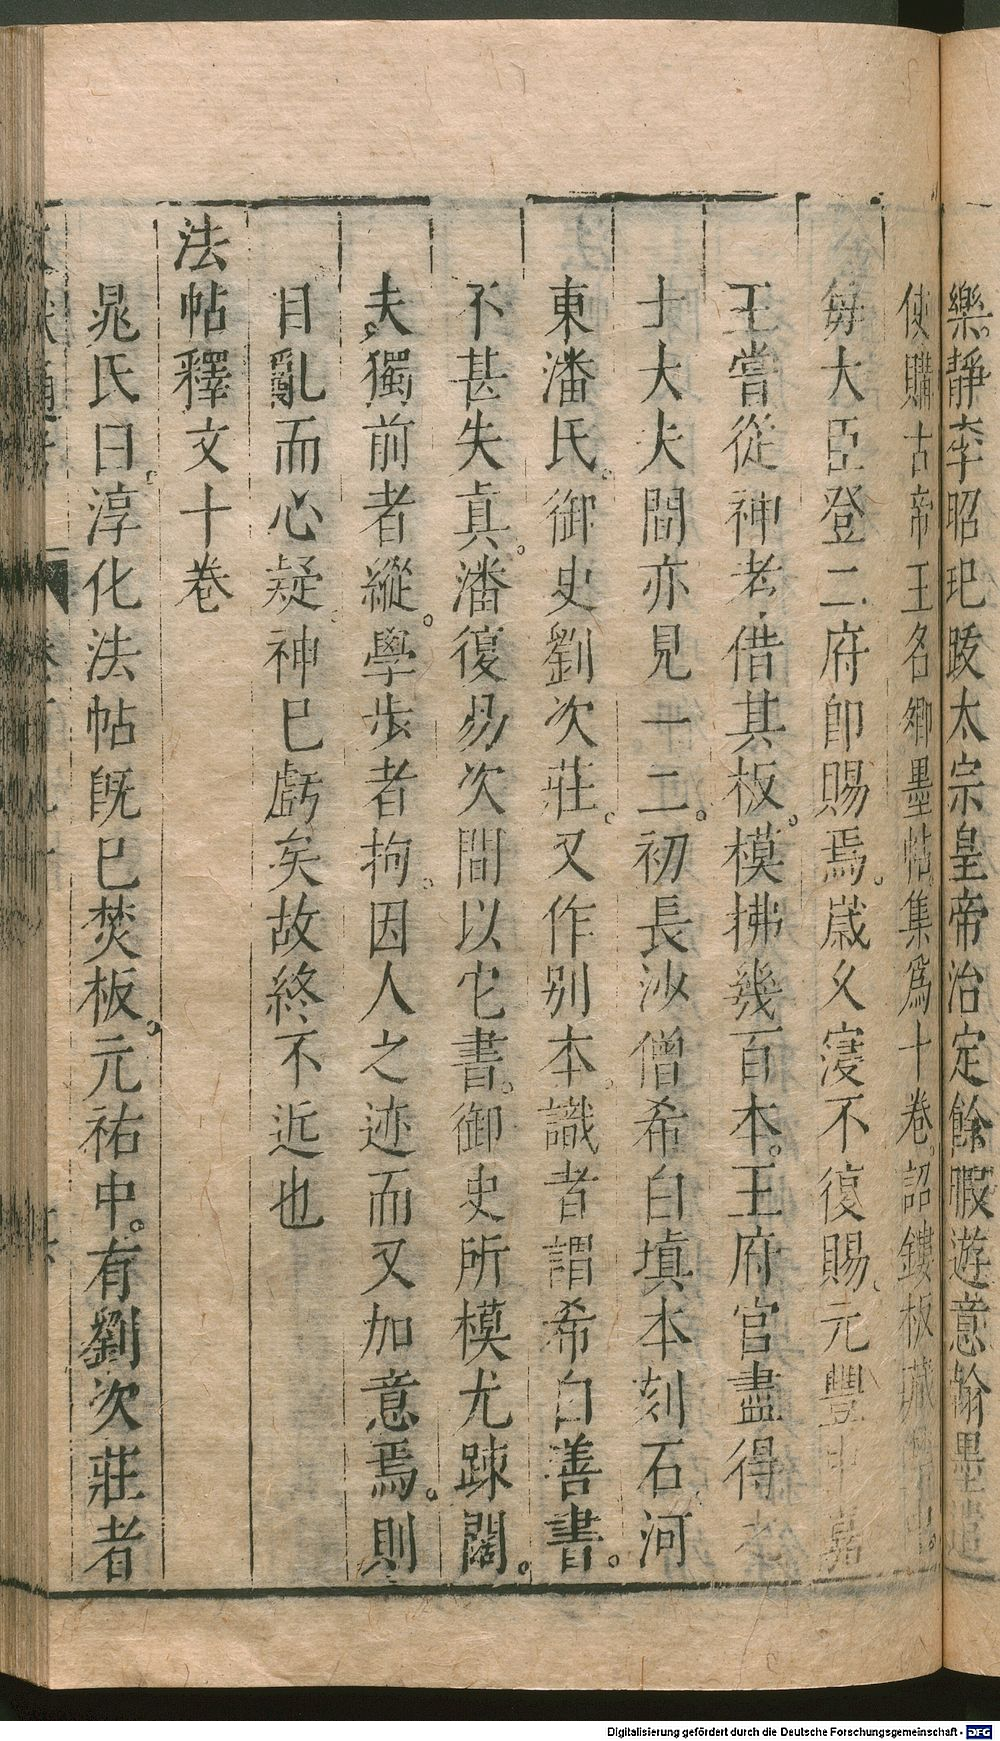 樂靜李昭玘跋太宗皇帝治定餘暇遊意翰墨遣
使購古帝王名卿墨帖集爲十卷。詔鏤板藏
每大臣登二府卽賜焉。歲久寖不復賜。元豐中嘉
王嘗從神考借其板。模拂幾百本。王府官盡得之
士大夫間亦見一二。初長沙僧希白填本刻石河
東潘氏。御史劉次莊。又作別本。識者謂希白善書。
不甚失真。潘復易次間以它書。御史所模尤踈闊。
夫。獨前者縱。學步者拘。因人之迹而又加意焉。則
目亂而心疑。神巳虧矣故終不近也
法帖釋文十卷
晁氏曰。淳化法帖旣巳焚板。元祐中。有劉次莊者
Digitalisierung gefördert durch die Deutsche Forschungsgemeinschaft - DFG